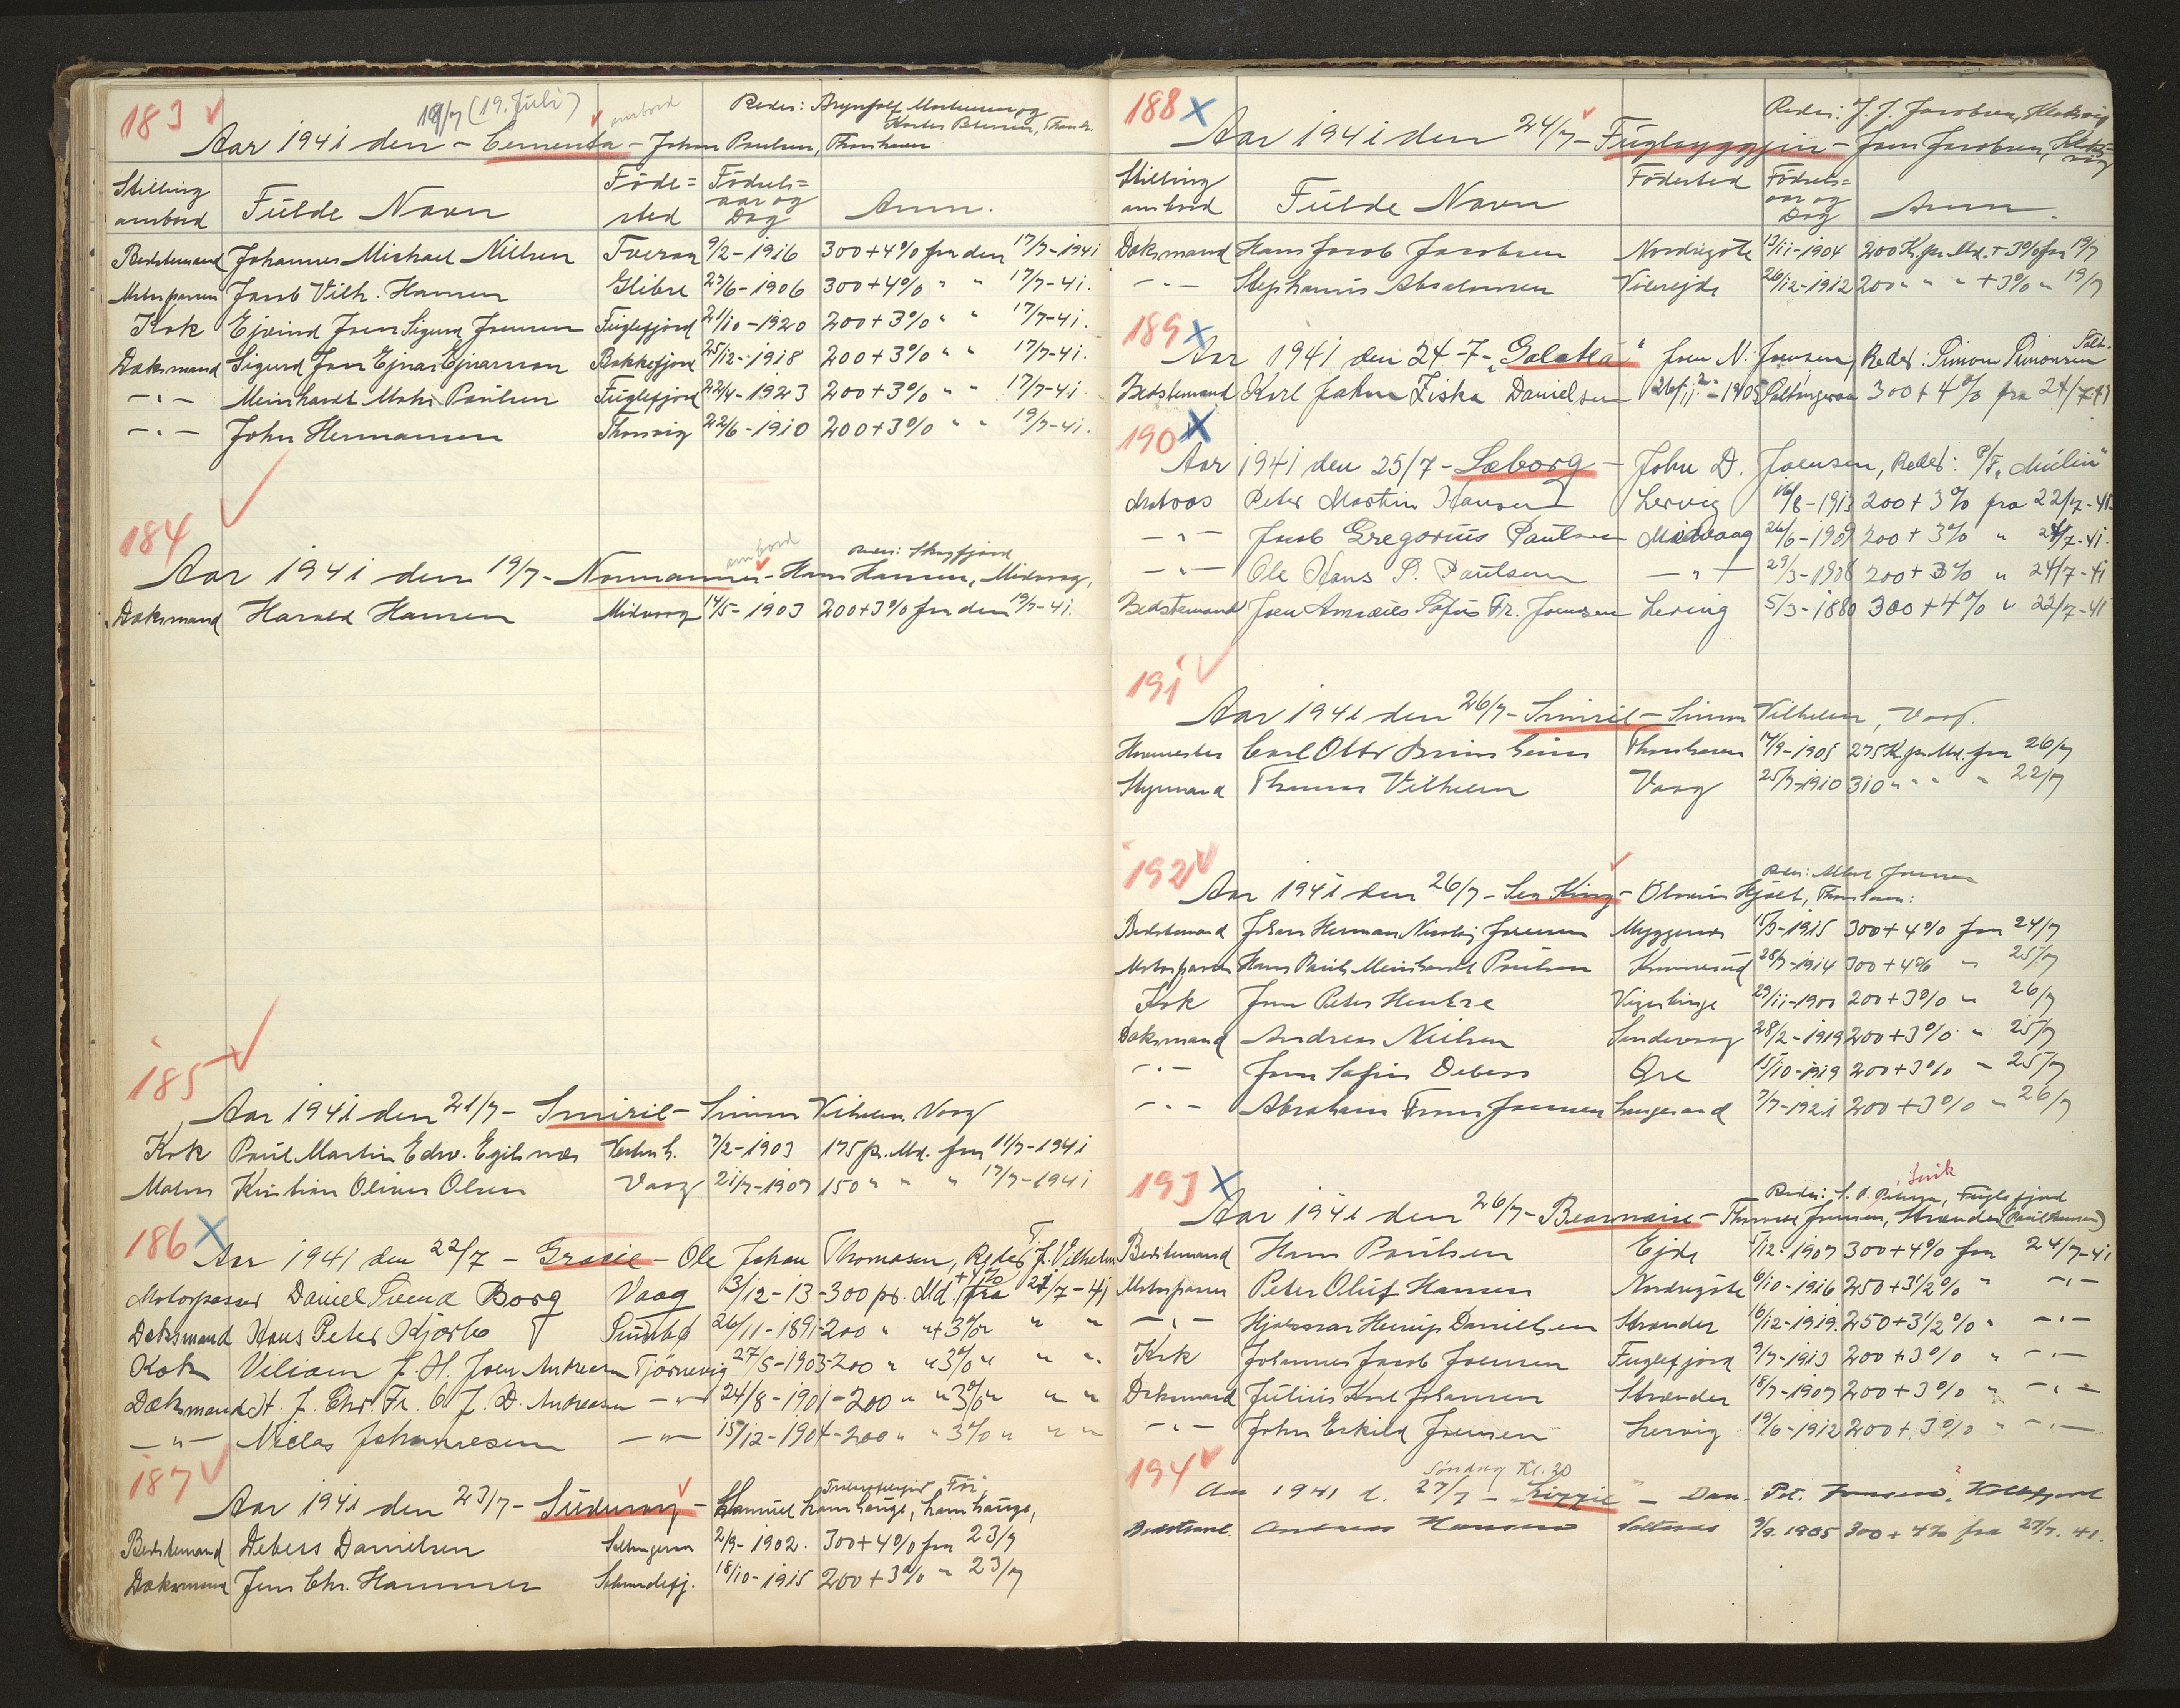 183
19/7 (19. Juli)
ombord
Reder:
Aar 1941 den - Cementa - Johan Paulsen, Thorshavn
Stilling ombord
Fulde Navn
Fødested
Fødselsaar og Dag
Anm.
Bedstemand Johannes Michael Nielsen Tveraa 9/2-1916 300+4% fra den 17/7-1941
Motorpasser Jacob Vilh. Hansen Glibre 27/6-1906 300+4% " " 17/7-41.
Kok Ejvind Joen Sigurd Joensen Fuglefjord 21/10-1920 200+3% " " 17/7-41.
Dæksmand Sigurd Joen Ejnar Ejnarsson Bakkefjord 25/12-1918 200+3% " " 17/7-41.
-"- Meinhardt Mohr Paulsen Fuglefjord 22/4-1923 200+3% " " 17/7-41.
-"- John Hermansen Thorsvig 22/6-1910 200+3% " " 19/7-41.
184
ombord
Reder: Skagfjord
Aar 1941 den 19/7 - Normanner - Hans Hansen, Midvaag,
Dæksmand Harald Hansen Midvaag 14/5-1903 200+3% fra den 19/7-41.
185
Aar 1941 den 21/7 - Smiril - Simun Vilhelm. Vaag
Kok Paul Martin Edv. Egilsnæs Vestmh. 7/2-1903 175 pr. Md. fra 11/7-1941
Matros Kristian Oliver Olsen Vaag 21/7-1907 150 " " " 17/7-1941
186
Aar 1941 den 22/7 - Gracie - Ole Johan Thomasen, Reder T. J. Vilhelm
Motorpasser Daniel Svend Borg Vaag 3/12-13-300 pr. Md. +4% fra 21/7-41
Dæksmand Hans Peter Kjærbo Sumbø 26/11-1891-200 " "+3% " " "
Kok Viliam J. H. Joen Andreasen Tjørnevig 27/5-1903-200 " " 3% " " "
Dæksmand H. J. Chr. Fr. O. J. D. Andreasen -"- 24/8-1901-200 " " 3% " " "
-"- Niclas Johannesen -"- 15/12-1904-200 " " 3% " " "
187
Aar 1941 den 23/7 - Suduroy - Samuel Lamhauge, Lamhauge,
Bedstemand Debess Danielsen Saltangeraa 2/9-1902. 300+4% fra 23/7
Dæksmand Jens Chr. Hammer Skaandefj. 18/10-1915 200+3% " 23/7
188
Reder: J. J. Jacobsen, Klaksvig
Aar 1941 den 24/7 - Fugloyggjin - Jens Jacobsen, Klaksvig
Stilling ombord
Fulde Navn
Fødested
Fødselsaar og Dag
Anm.
Dæksmand Hans Jacob Jacobsen Nordragøte 13/11-1904 200 Kr. pr. Md. +3% fra 19/7
-"- Stephanus Absalonsen Viderejde 26/12-1912 200 " " " +3% " 19/7
189
Aar 1941 den 24-7 - "Galatea" Joen N. Joensen, Reder: Simon Simonsen Salt.
Bedstemand Karl Jahn Ziska Danielsen 26/11-1905 Saltangeraa 300+4% fra 24/7-41
190
Aar 1941 den 25/7 - Søborg - John D. Joensen, Reder: P/F. "Mulin"
Matros Peter Martin Hansen Lervig 16/8-1913 200+3% fra 22/7-41.
-"- Jacob Gregorius Paulsen Midvaag 26/6-1909 200+3% " 24/7-41.
-"- Ole Hans P. Paulsen -"- 29/3-1908 200+3% " 24/7-41
Bedstemand Joen Amsæus Sofus Fr. Joensen Lervig 5/3-1880 300+4% " 22/7-41
191
Aar 1941 den 26/7 - Smiril - Simun Vilhelm, Vaag.
Hovmester Carl Otto Brimheim Thorshavn 17/9-1905 275 Kr. pr. Md. fra 26/7
Styrmand Thomas Vilhelm Vaag 25/7-1910 310 " " " " 22/7
192
Reder: Joensen
Aar 1941 den 26/7 - Sea King - Olivur Hjalt, Thorshavn:
Bedstemand Johan Herman Nicolaj Joensen Myggenæs 15/3-1915 300+4% fra 24/7
Motorpasser Hans Pauli Meinhardt Poulsen 28/7-1914 300+4% " 25/7
Kok Jens Peter Hentze 29/11-1900 200+3% " 26/7
Dæksmand Andreas Nielsen Sandevaag 28/2-1919 200+3% " 25/7
-"- Jens Sofus Debess Øre 15/10-1919 200+3% " 25/7
-"- Abraham Frans Joensen Langesand 7/7-1921 200+3% " 26/7
193
Reder: Fuglefjord
Aar 1941 den 26/7 - Bearnaise - Joensen, Strænder (Paul Hansen)
Bedstemand Hans Poulsen Ejde 5/12-1907 300+4% fra 24/7-41
Motorpasser Peter Oluf Hansen Nordragøte 6/10-1916 250+3 1/2% " -"-
-"- Hjalmar Heinrip Danielsen Strænder 6/12-1919. 250+3 1/2% " -"-
Kok Johannes Jacob Joensen Fuglefjord 9/7-1913 200+3% " -"-
Dæksmand Julius Karl Johansen Strænder 18/7-1907 200+3% " -"-
-"- John Eskild Joensen Lervig 19/6-1912 200+3% " -"-
194
Søndag Kl. 20
Aar 1941 d. 27/7 - "Lizzie" - Dan. Pet. Joensen, Kollefjord
Bedstemd. Andreas Hansen Saltnæs 9/9.1905 300+4% fra 27/7.41.